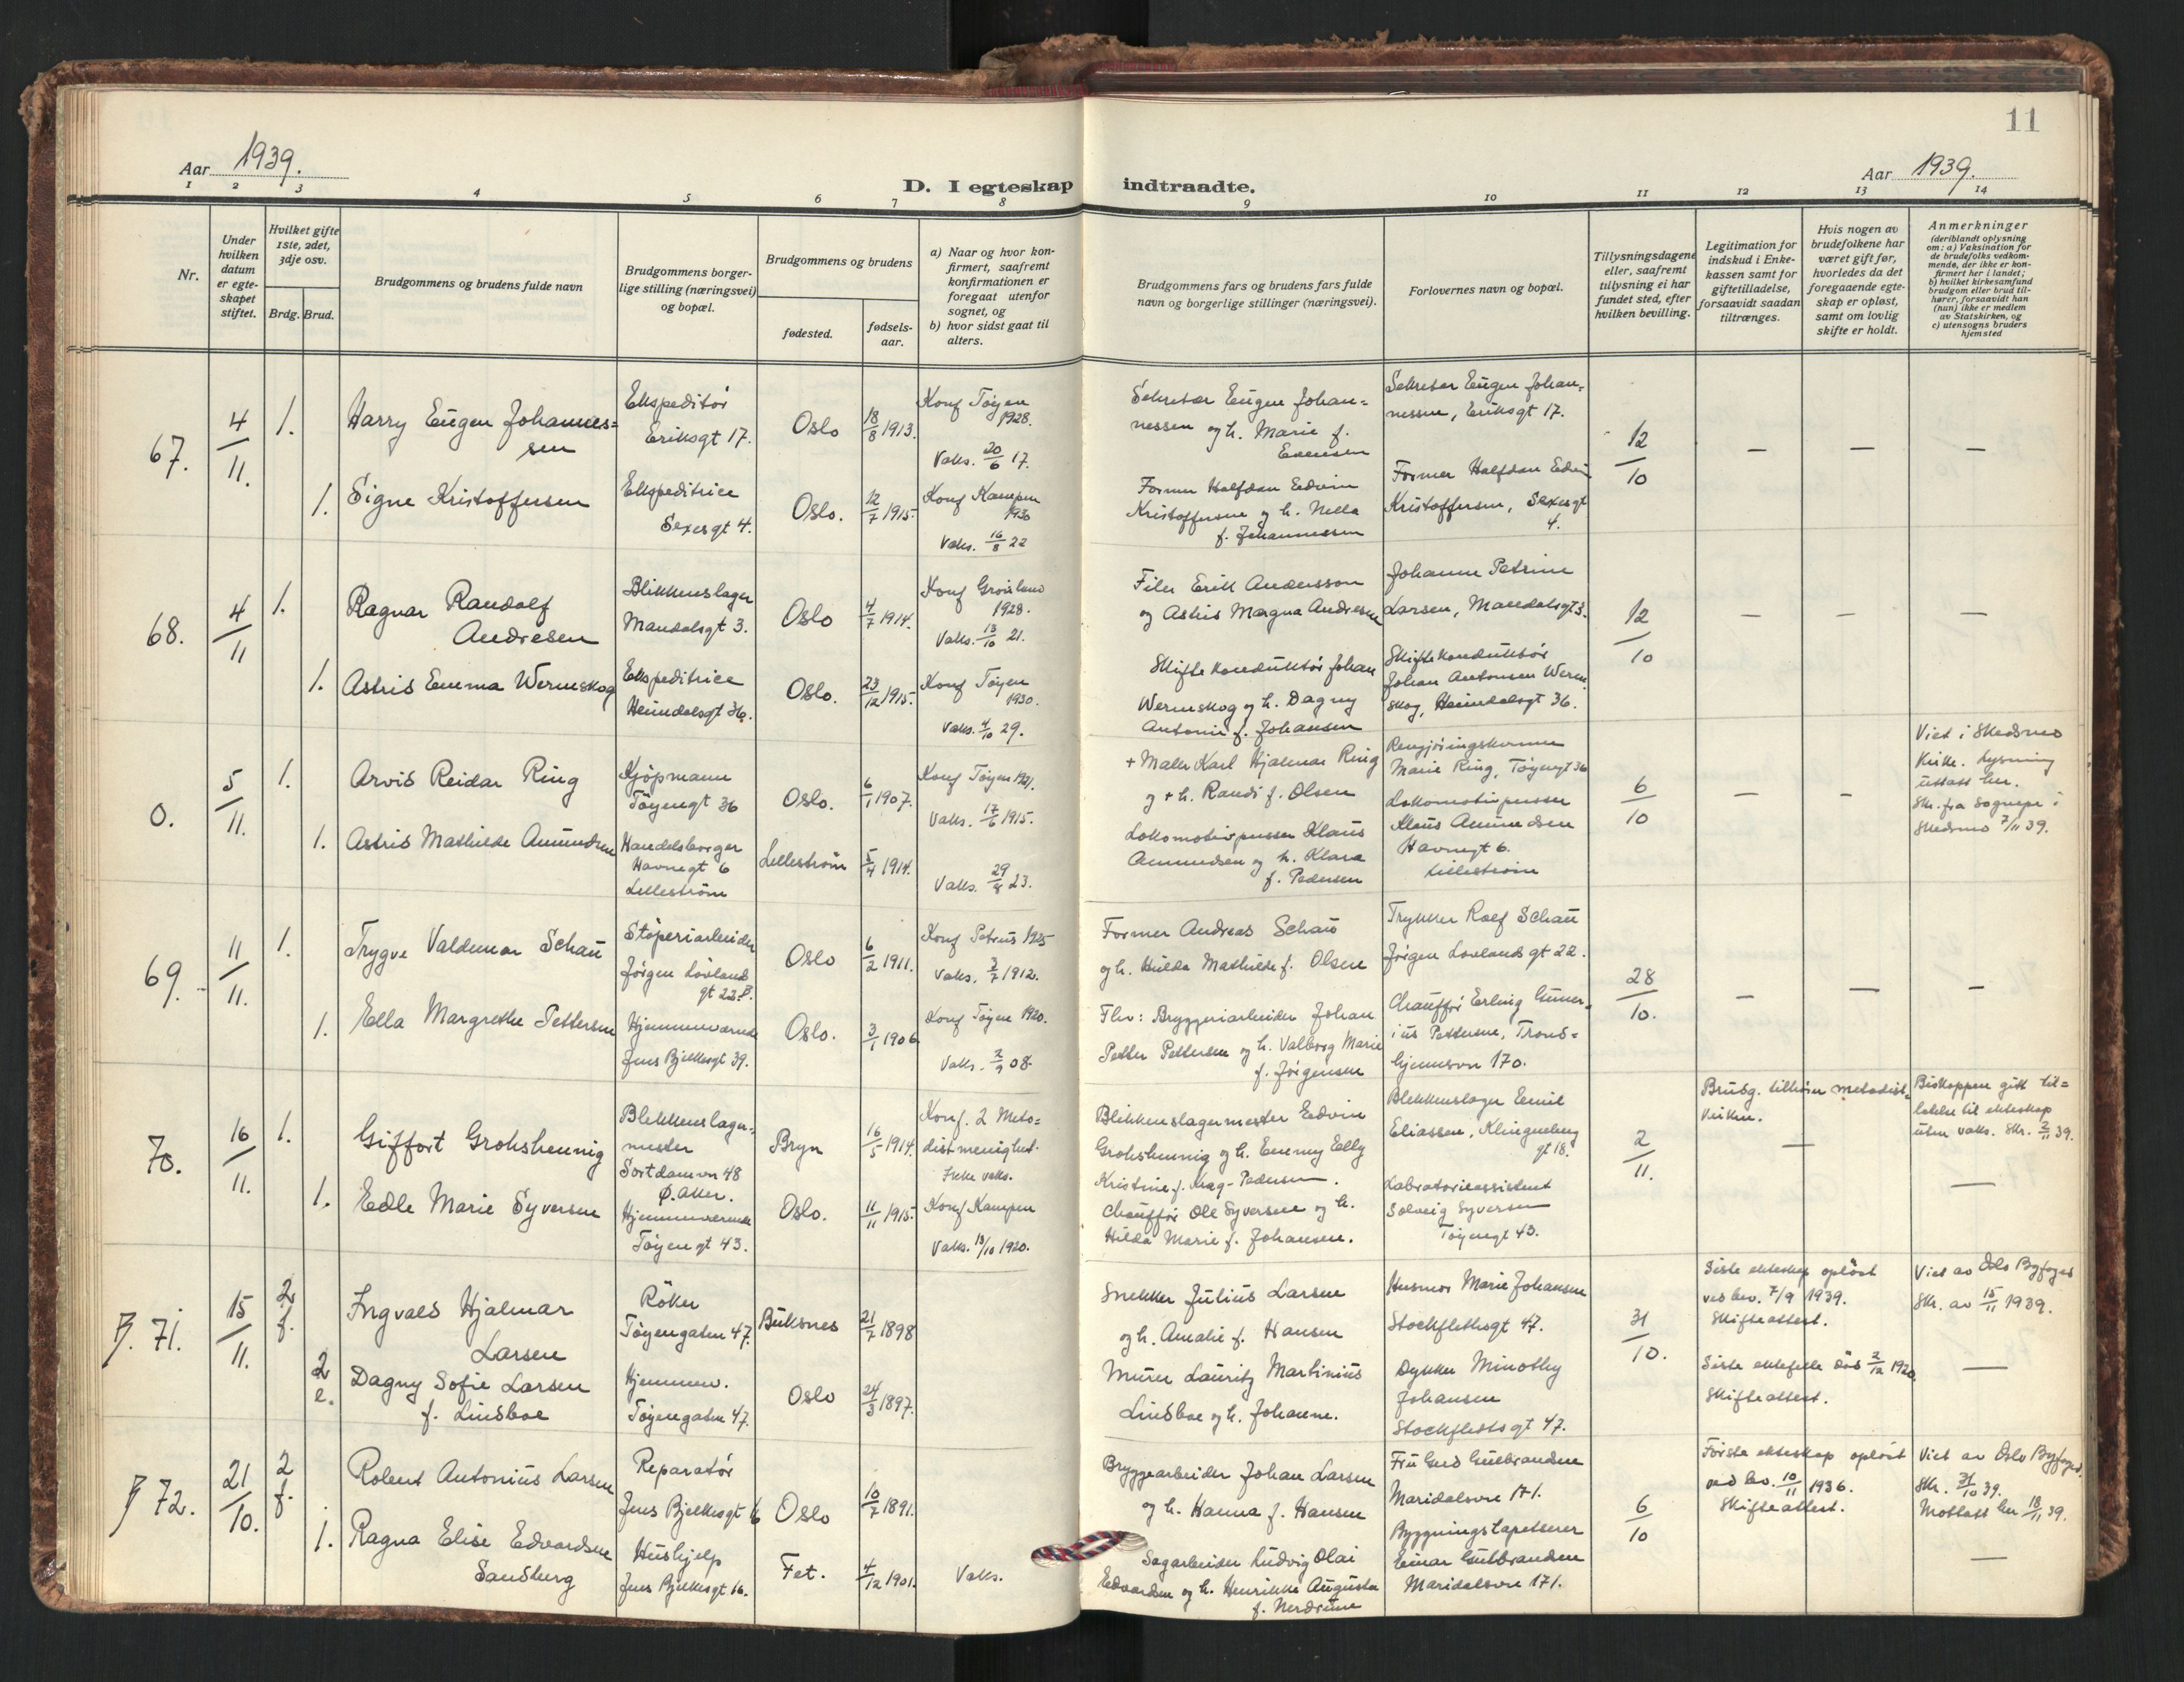 11
Aar 1939.
D. I egteskap indtraadte.
Aar 1939.
1 2 3 4 5 6 7 8 9 10 11 12 13 14
Nr.
Under hvilken datum er egte- skapet stiftet.
Hvilket gifte 1ste, 2det, 3dje osv.
Brdg. Brud.
Brudgommens og brudens fulde navn
Brudgommens borger- lige stilling (næringsvei) og bopæl.
Brudgommens og brudens
fødested.
fødsels- aar.
a) Naar og hvor kon- firmert, saafremt konfirmationen er foregaat utenfor sognet, og
b) hvor sidst gaat til alters.
Brudgommens fars og brudens fars fulde navn og borgerlige stillinger (næringsvei).
Forlovernes navn og bopæl.
Tillysningsdagene eller, saafremt tillysning ei har fundet sted, efter hvilken bevilling.
Legitimation for indskud i Enke- kassen samt for giftetilladelse, forsaavidt saadan tiltrænges.
Hvis nogen av brudefolkene har været gift før, hvorledes da det foregaaende egte- skap er opløst, samt om lovlig skifte er holdt.
Anmerkninger (deriblandt oplysning om: a) Vaksination for de brudefolks vedkom- mende, der ikke er kon- firmert her i landet; b) hvilket kirkesamfund brudgom eller brud til- hører, forsaavidt han (hun) ikke er medlem av Statskirken, og c) utensogns bruders hjemsted
67. 4/11. 1. Harry Eugen Johannes=
sen
Ekspeditør
Eriksgt 17.
Oslo 18/8 1913.
Konf Tøyen
1928.
Vaks. 20/6 17.
Sekretær Eugen Johan=
nessen og h. Marie f.
Evensen
Sekretær Eugen Johan=
nessen, Eriksgt 17.
12/10 – – –
1. Signe Kristoffersen
Ekspeditrice
Sexesgt 4.
Oslo. 12/7 1915.
Konf Kampen
1930
Vaks. 16/8 22
Former Halfdan Edvin
Kristoffersen og h. Nella
f. Johannessen
Former Halfdan Edvin
Kristoffersen, Sexesgt
4.
68. 4/11 1. Ragnar Randolf
Andresen
Blikkenslager
Mandalsgt 3.
Oslo 4/7 1914.
Konf Grønland
1928.
Vaks. 13/10 21.
Filer Erik Andersson
og Astrid Magna Andresen
Johanne Petrine
Larsen, Mandalsgt 3.
12/10 – – –
1. Astrid Emma Wermskog
Ekspeditrice
Heimdalsgt 36.
Oslo. 23/12 1915.
Konf Tøyen
1930.
Vaks. 4/10 29.
Skiftekonduktør Johan
Wermskog og h. Dagny
Antonie f. Johansen
Skiftekonduktør
Johan Antonsen Werm
skog, Heimdalsgt 36.
0. 5/11. 1. Arvid Reidar Ring
Kjøpmann
Tøyengt 36
Oslo. 6/1 1907.
Konf Tøyen 1921.
Vaks. 17/6 1915.
+ Maler Karl Hjalmar Ring
og + h. Randi f. Olsen
Rengjøringskonne
Marie Ring, Tøyengt 36
6/10 – –
Viet i Skedsmo
Kirke. Lysning
uttatt her.
Skr. fra Sognepr i
Skedsmo 7/11 39.
1. Astrid Mathilde Amundsen
Handelsborger
Havnegt 6
Lillestrøm
Lillestrøm 5/4 1914.
Vaks. 29/8 23.
Lokomotivpusser Klaus
Amundsen og h. Klara
f. Pedersen
Lokomotivpusser
Klaus Amundsen
Havnegt 6.
Lillestrøm
69. 11/11. 1. Trygve Valdemar Schau
Støperiarbeider
Jørgen Løvlands
gt 22B.
Oslo 6/2 1911.
Konf Petrus 1925
Vaks. 2/7 1912.
Former Andreas Schau
og h. Hulda Mathilde f. Olsen
Trykker Rolf Schau
Jørgen Løvlands gt 22.
28/10. – – –
1. Ella Margrethe Pettersen
Hjemmeværende
Jens Bjelkesgt 39.
Oslo. 3/1 1906.
Konf Tøyen 1920.
Vaks. 2/9 08.
Flv: Bryggeriarbeider Johan
Petter Pettersen og h. Valborg Marie
f. Jørgensen
Chauffør Erling Guner=
ius Pettersen, Trond=
hjemsvn 170.
70. 16/11. 1. Giffort Grohshennig
Blikkenslager-
mester
Sortdamvn 48
Ø. Aker.
Bryn 16/5 1914.
Konf. 2 Meto=
distmenighet.
Ikke vaks.
Blikkenslagermester Edvin
Grohshennig og h. Emmy Elly
Kristine f. Krag-Pedersen.
Blikkenslager Emil
Eliassen, Klingenberg
gt 18.
2/11.
Brudg. tilhører metodist-
kirken.
–
Biskoppen gitt til=
latelse til ekteskap
uten vaks. Skr. 2/11 39.
–
1. Edle Marie Syversen
Hjemmeværende
Tøyengt 43.
Oslo. 11/11 1915.
Konf Kampen
Vaks. 13/10 1920.
Chauffør Ole Syversen og h.
Hilda Marie f. Johansen.
Labratorieassistent
Solveig Syversen
Tøyengt 43.
B. 71. 15/11. 2 f. Ingvald Hjalmar
Larsen
Røker
Tøyengaten 47.
Buksnes 21/7 1898
Snekker Julius Larsen
og h. Amalie f. Hansen
Husmor Marie Johansen
Stockflethsgt 47.
31/10.
Siste ekteskap opløst
ved bev. 7/9 1939.
Skifteattest.
Viet av Oslo Byfoged
Skr. av 15/11 1939.
2 e. Dagny Sofie Larsen
f. Lindboe
Hjemmev.
Tøyengaten 47.
Oslo 24/3 1897.
Murer Lauritz Martinius
Lindboe og h. Johanne.
Dykker Minothy
Johansen
Stockflethsgt 47.
Siste ektefelle død 2/12 1920.
Skifteattest.
–
B 72. 21/10. 2 f. Robert Antonius Larsen
Reparatør
Jens Bjelkesgt 16
Oslo 10/7 1891.
Bryggearbeider Johan Larsen
og h. Hanna f. Hansen
Fru Gerd Gulbrandsen
Maridalsvn 171.
6/10
Første ekteskap opløst
ved bev. 10/11 1936.
Skifteattest.
Viet av Oslo Byfoged.
Skr. 31/10 39.
Mottatt her 18/11 39.
1. Ragna Elise Edvardsen
Sandberg
Hushjelp
Jens Bjelkesgt 16.
Fet. 4/12 1901.
Vaks.
Sagarbeider Ludvig Olai
Edvardsen og h. Henrikke Augusta
f. Nerdrum
Bygningstapetserer
Einar Gulbrandsen
Maridalsvn 171.
–